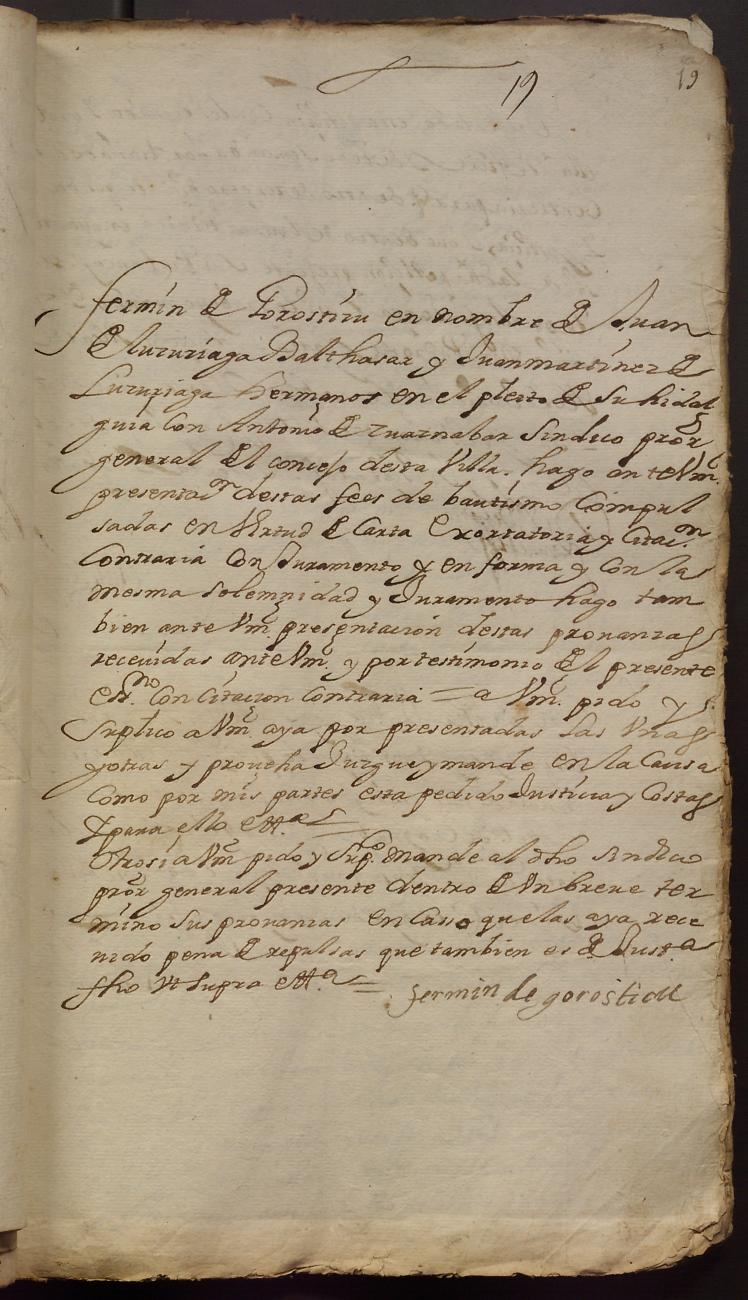 19
19
fermin de Gorostiçu en nombre de Juan
de luzuriaga Balthasar y Juan martinez de
Luzuriaga Hermanos en el pleito de su hidal
guia con Antonio de zuaznabar Sindico pror
general del concejo desta Villa. hago ante Vm.
presentaon destas fees de bautismo Compul
sadas en Virtud de Carta Exortatoria y Citaon
Contraria Con Juramento y en forma y con la
mesma Solemnidad y Juramento hago tam
bien ante Vm. presentacion destas prouanzas
receuidas ante Vm. y por testimonio del presente
essno. Con Citacion Contraria = a Vm. pido y
Suplico a Vm. aya por presentadas las Vnas
y otras y proueha Juzgue y mande en la Causa
Como por mis partes esta pedido Justicia y Costas
y para ello etta. =
Otrosi a Vm pido y Supco. mande al dho sindico
pror general presente dentro de Vn breue ter
mino Sus prouanzas en Casso que las aya rece
uido pena de repulsas que tambien es de Justa.
fho Vt Supra etta. = fermin de gorosticu